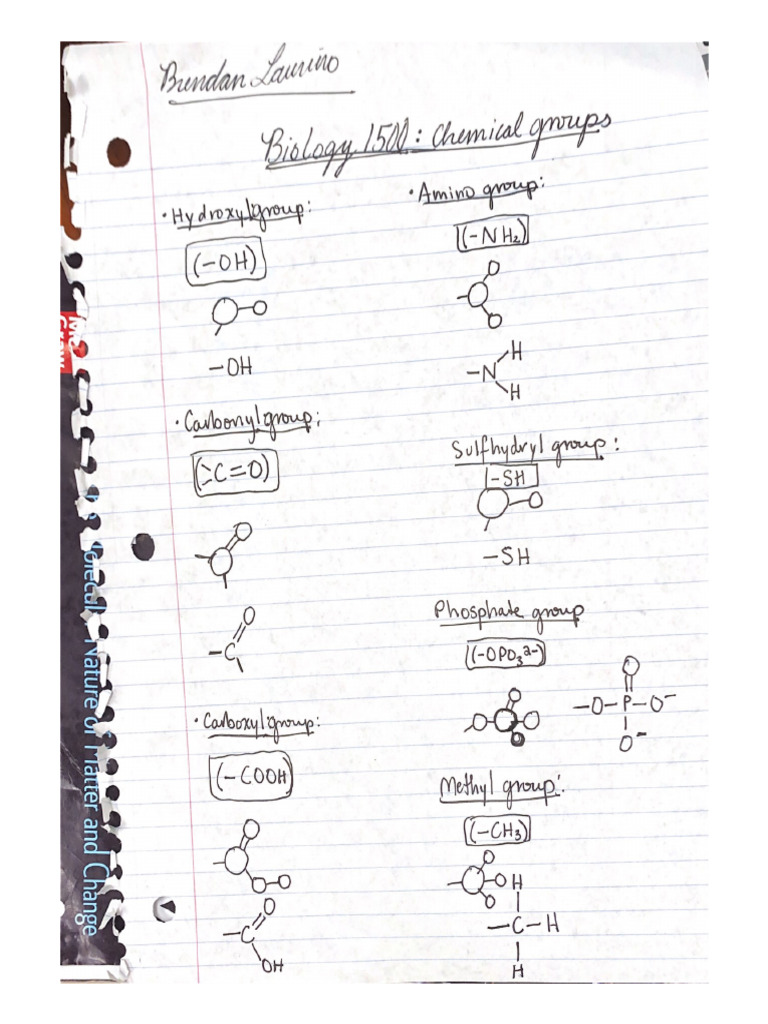 Brendan Laurino
Biology 1500: Chemical groups
• Hydroxyl group:
(-OH)
-OH
• Carbonyl group:
(>C=O)
O
-C
• Carboxyl group:
(-COOH)
O
-C
OH
• Amino group:
(-NH₂)
H
-N
H
Sulfhydryl group:
-SH
-SH
Phosphate group
(-OPO₃²⁻)
O
-O-P-O⁻
O⁻
Methyl group:
(-CH₃)
H
-C-H
H
Nature of Matter and Change